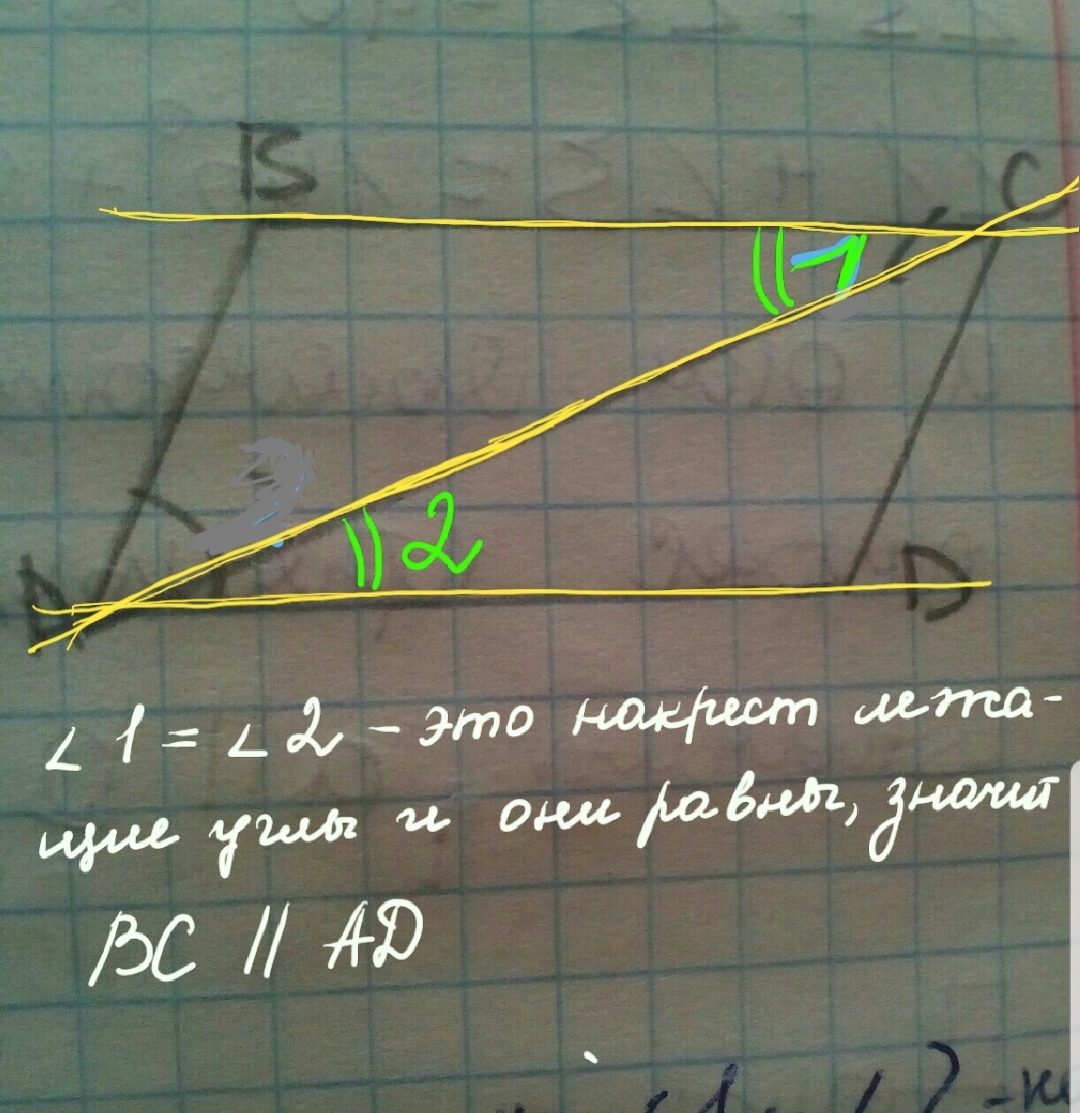 B
C
1
2
A
D
∠1 = ∠2 – это накрест лежа-
щие углы и они равны, значит
BC || AD